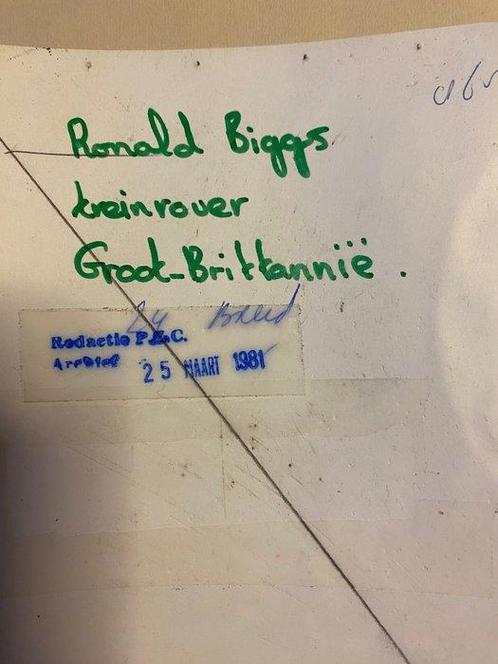 Ronald Biggs
treinrover
Groot-Brittannië.
Redactie P.Z.C.
Archief 25 MAART 1981